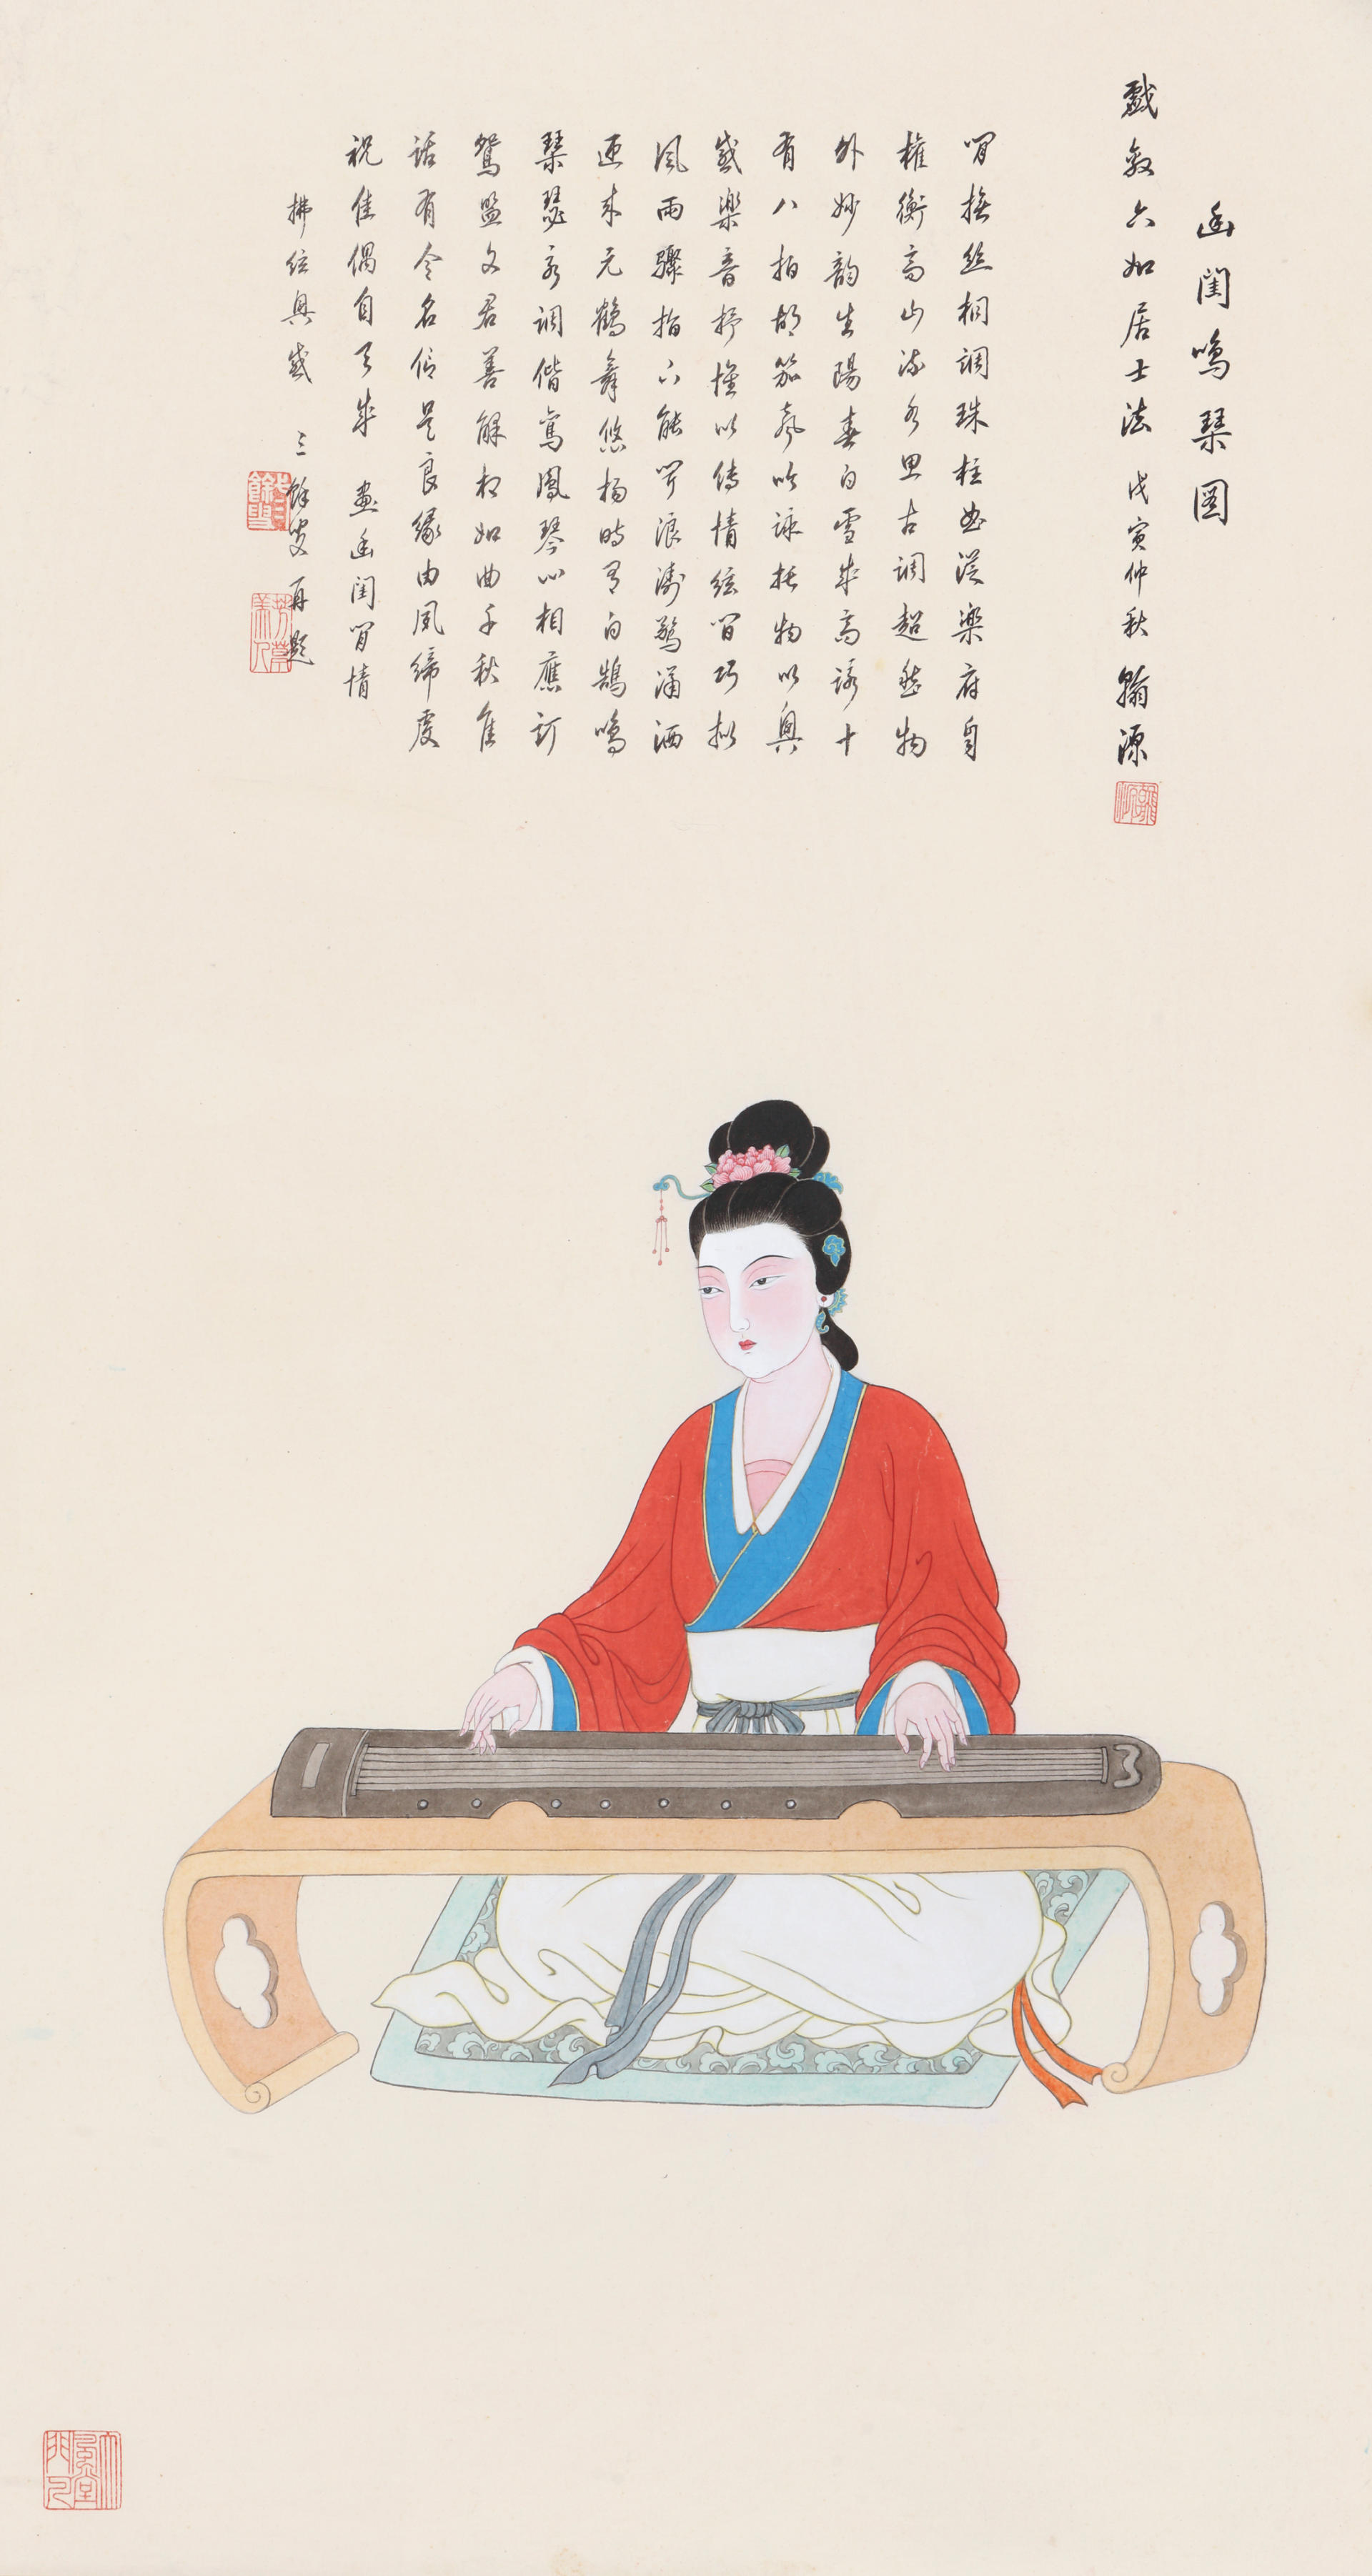 幽閨鳴琴圖
戲效六如居士法 戊寅仲秋 翰源
閒撫絲桐調珠柱曲從樂府自
權衡高山流水思古調超然物
外妙韵生陽春白雪成高詠十
有八拍胡笳氣吟詠托物以興
感樂音抒懷以傳情絃間巧拟
風雨驟指下能聞浪濤驚涌洒
迎來元鶴舞悠揚時有白鵠鳴
琴瑟永調偕鸞鳳琴心相應訂
鴛盟文君善解相如曲千秋佳
話有令名信是良緣由夙締虔
祝佳偶自天成 畫幽閨閒情
拂絃興感 三餘叟再題